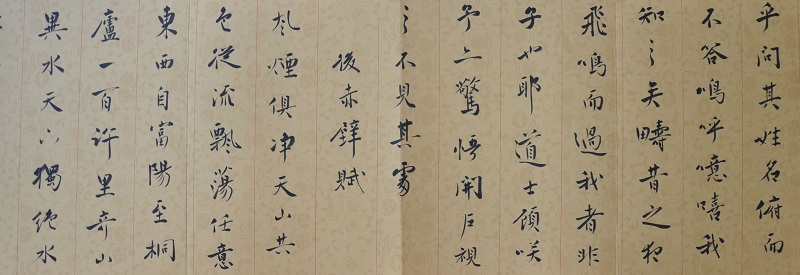 乎問其姓名俯而
不答嗚呼噫嘻我
知之矣疇昔之夜
飛鳴而過我者非
子也耶道士顧咲
予亦驚悟開戶視
之不見其處
後赤壁賦
風煙俱净天山共
色從流飄蕩任意
東西自富陽至桐
廬一百許里奇山
異水天下獨絕水